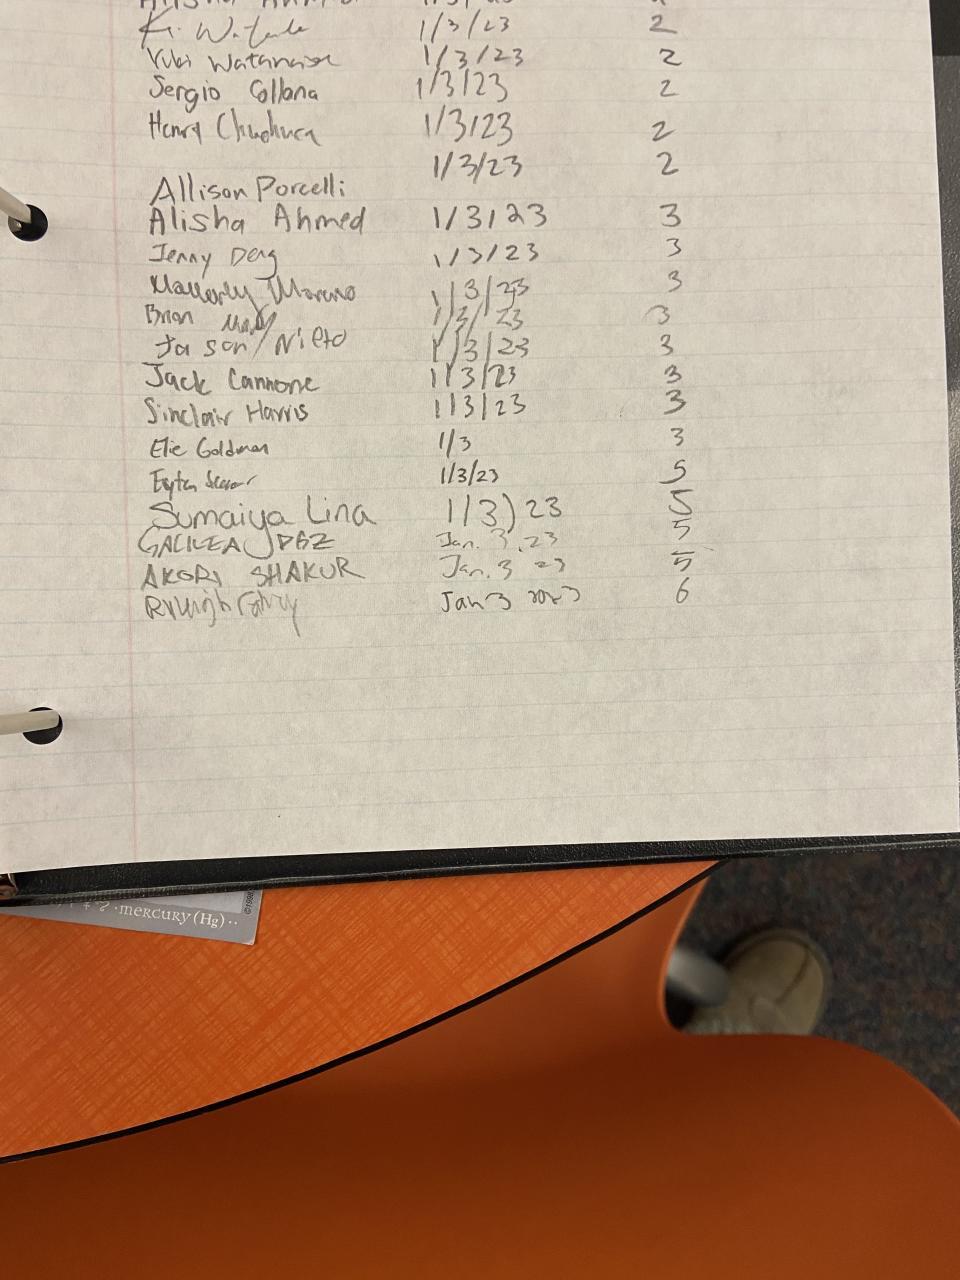 1/3/23 2
Yuki Watanabe 1/3/23 2
Sergio Collana 1/3/23 2
Henry 1/3/23 2
1/3/23 2
Allison Porcelli
Alisha Ahmed 1/3/23 3
Jenny Deng 1/3/23 3
Moreno 1/3/23 3
Brian 1/3/23 3
Jason Nieto 1/3/23 3
Jack Cannone 1/3/23 3
Sinclair Harris 1/3/23 3
Elie Goldman 1/3 3
1/3/23 5
Sumaiya Lina 1/3/23 5
GALILEA Jan. 3, 23 5
SHAKUR Jan. 3 23 5
Jan 3 2023 6
mercury (Hg)
©1998